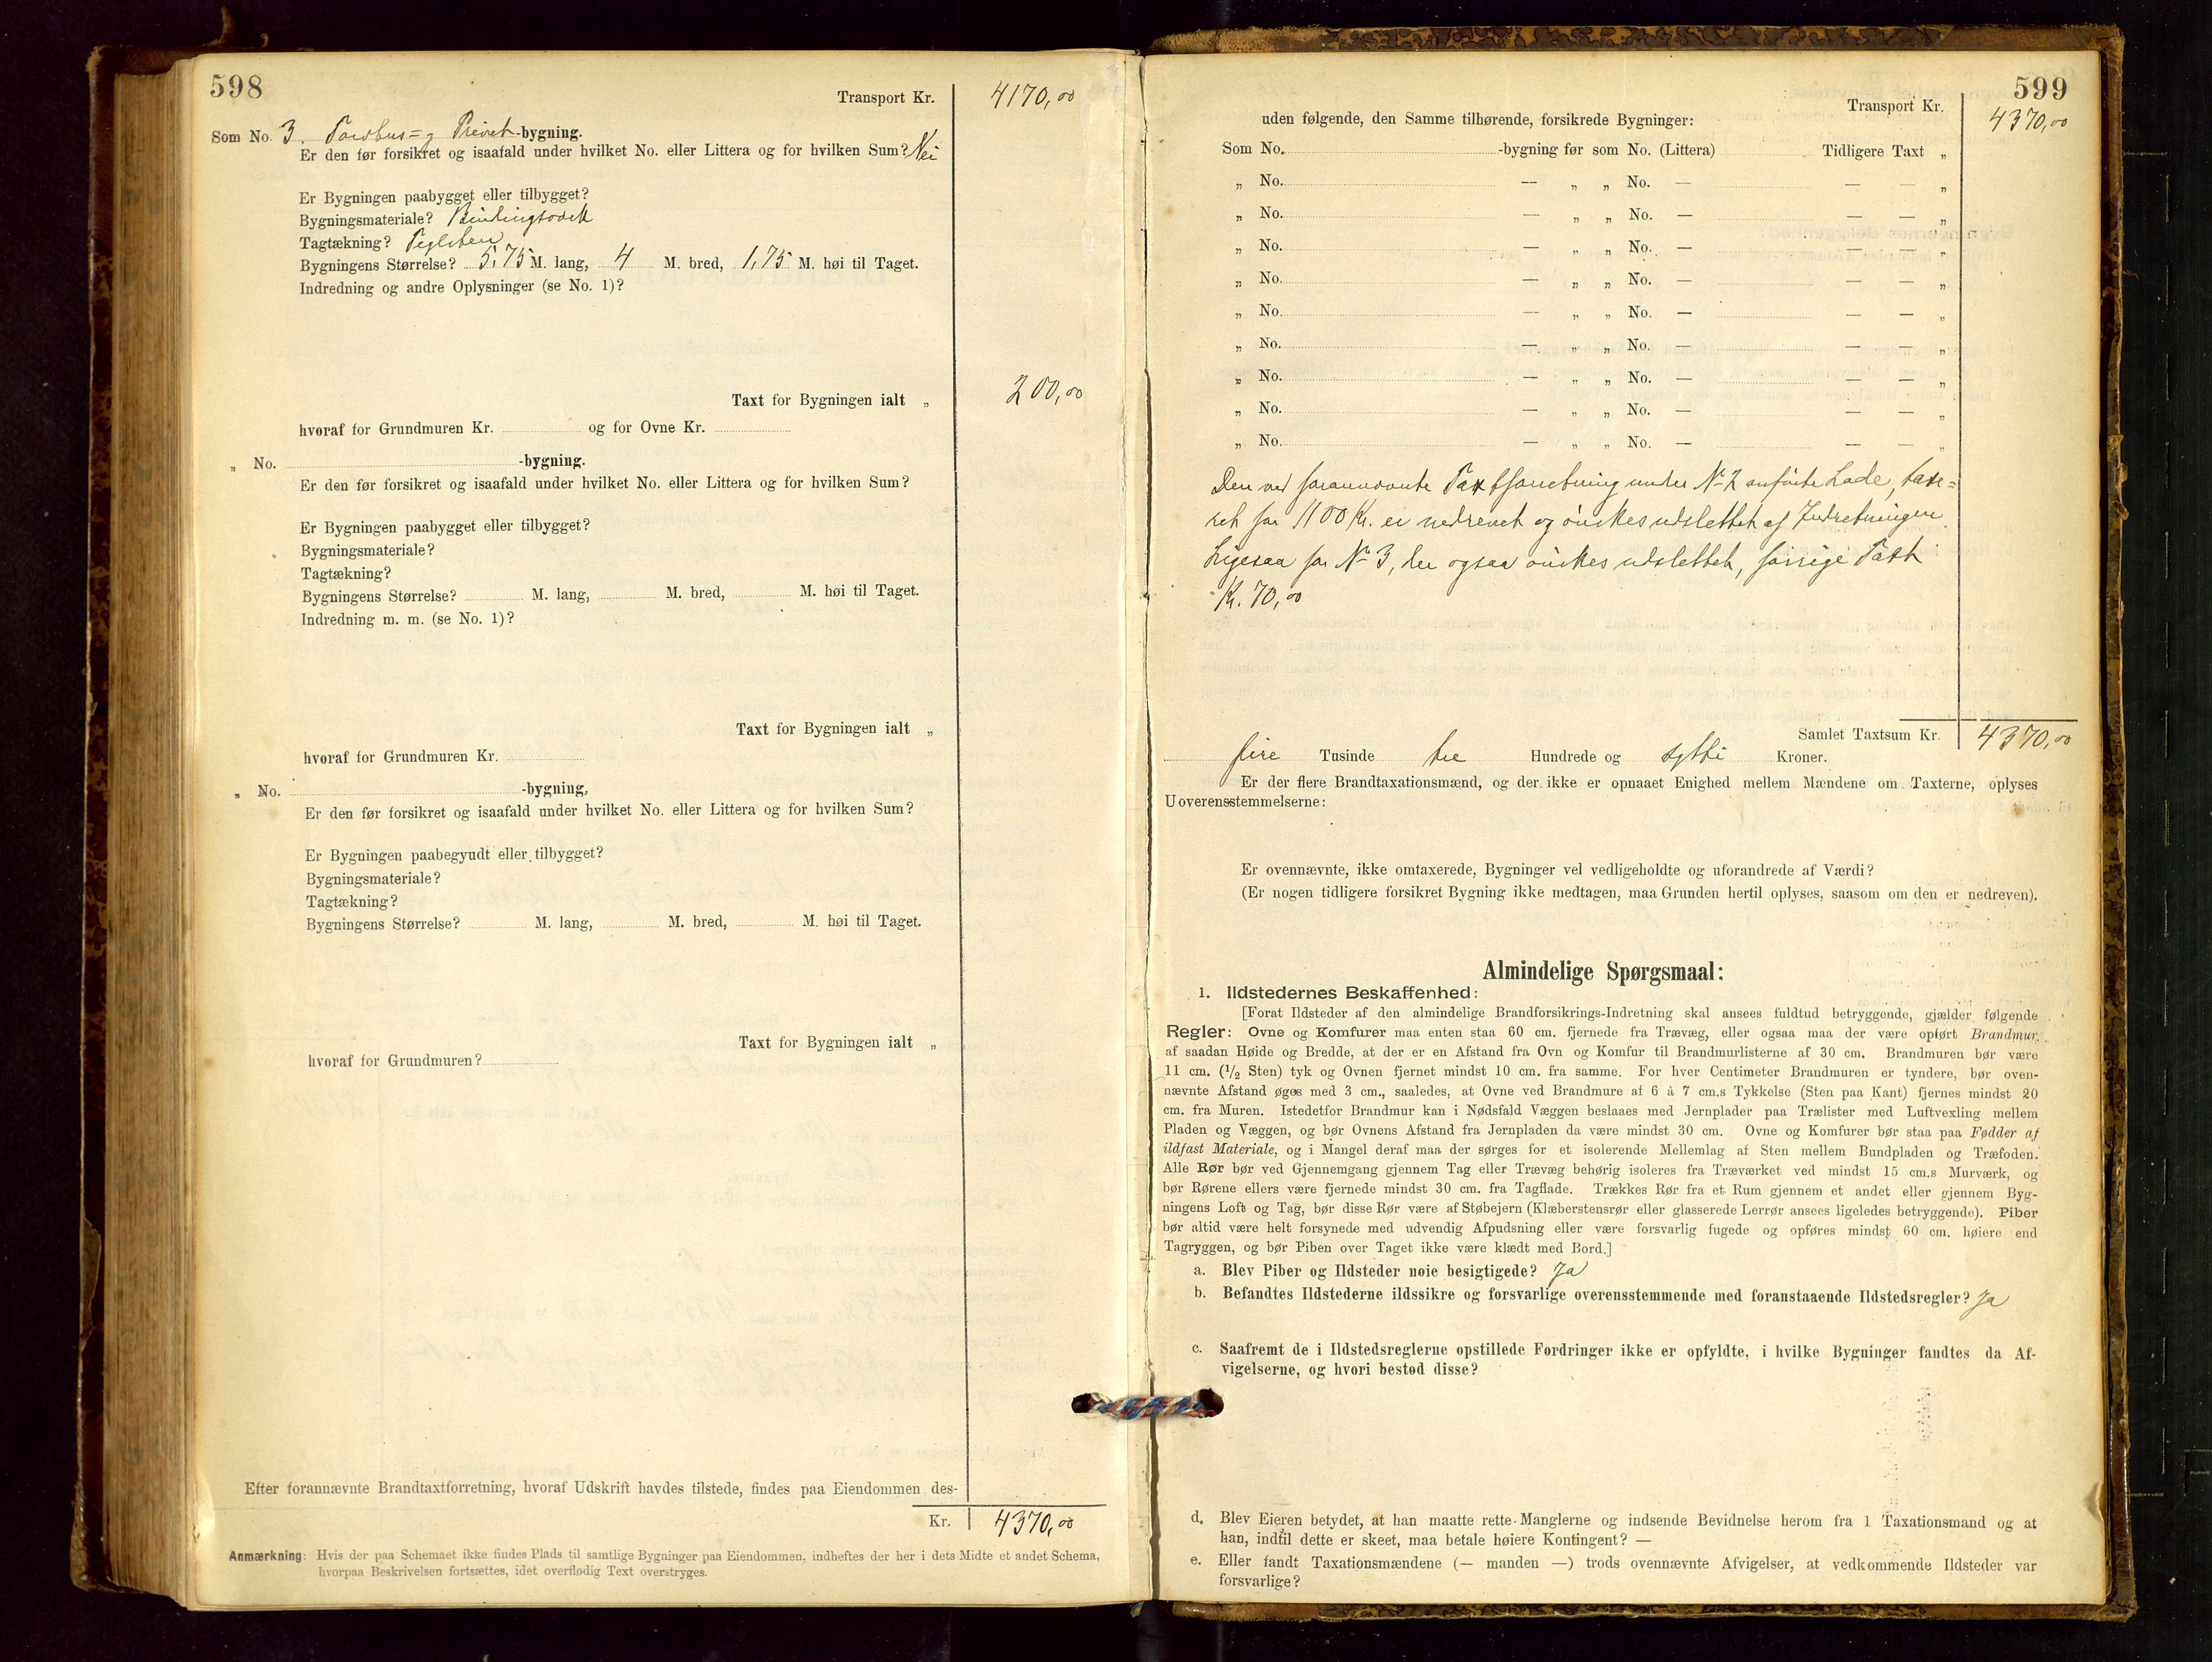 598
Transport Kr. 4170,00
Som No. 3. Torvhus= og Privet-bygning.
Er den før forsikret og isaafald under hvilket No. eller Littera og for hvilken Sum? Nei
Er Bygningen paabygget eller tilbygget?
Bygningsmateriale? Bindingsværk
Tagtækning? Teglsten
Bygningens Størrelse? 5,75 M. lang, 4 M. bred, 1,75 M. høi til Taget.
Indredning og andre Oplysninger (se No. 1)?
Taxt for Bygningen ialt „ 200,00
hvoraf for Grundmuren Kr. og for Ovne Kr.
„ No. -bygning.
Er den før forsikret og isaafald under hvilket No. eller Littera og for hvilken Sum?
Er Bygningen paabygget eller tilbygget?
Bygningsmateriale?
Tagtækning?
Bygningens Størrelse? M. lang, M. bred, M. høi til Taget.
Indredning m. m. (se No. 1)?
Taxt for Bygningen ialt „
hvoraf for Grundmuren Kr.
„ No. -bygning,
Er den før forsikret og isaafald under hvilket No. eller Littera og for hvilken Sum?
Er Bygningen paabegyudt eller tilbygget?
Bygningsmateriale?
Tagtækning?
Bygningens Størrelse? M. lang, M. bred, M. høi til Taget.
Taxt for Bygningen ialt „
hvoraf for Grundmuren?
Efter forannævnte Brandtaxtforretning, hvoraf Udskrift havdes tilstede, findes paa Eiendommen des-
Kr. 4370,00
Anmærkning: Hvis der paa Schemaet ikke findes Plads til samtlige Bygninger paa Eiendommen, indheftes der her i dets Midte et andet Schema,
hvorpaa Beskrivelsen fortsættes, idet overflødig Text overstryges.
599
Transport Kr. 4370,00
uden følgende, den Samme tilhørende, forsikrede Bygninger:
Som No. -bygning før som No. (Littera) Tidligere Taxt „
„ No. — „ „ No. — — — „
„ No. — „ „ No. — — — „
„ No. — „ „ No. — — — „
„ No. — „ „ No. — — — „
„ No. — „ „ No. — — — „
„ No. — „ „ No. — — — „
„ No. — „ „ No. — — — „
„ No. — „ „ No. — — — „
„ No. — „ „ No. — — — „
Den ved forannævnte Taxtforretning under No 2 anførte Lade, taxe=
ret for 1100 Kr. er nedrevet og ønskes udslettet af Indretningen.
Ligesaa for No 3, der ogsaa ønskes udslettet, forrige Taxt
Kr. 70,00
Samlet Taxtsum Kr. 4370,00
fire Tusinde tre Hundrede og sytti Kroner.
Er der flere Brandtaxationsmænd, og der ikke er opnaaet Enighed mellem Mændene om Taxterne, oplyses
Uoverensstemmelserne:
Er ovennævnte, ikke omtaxerede, Bygninger vel vedligeholdte og uforandrede af Værdi?
(Er nogen tidligere forsikret Bygning ikke medtagen, maa Grunden hertil oplyses, saasom om den er nedreven).
Almindelige Spørgsmaal:
1. Ildstedernes Beskaffenhed:
[Forat Ildsteder af den almindelige Brandforsikrings-Indretning skal ansees fuldtud betryggende, gjælder følgende
Regler: Ovne og Komfurer maa enten staa 60 cm. fjernede fra Trævæg, eller ogsaa maa der være opført Brandmur,
af saadan Høide og Bredde, at der er en Afstand fra Ovn og Komfur til Brandmurlisterne af 30 cm. Brandmuren bør være
11 cm. (1/2 Sten) tyk og Ovnen fjernet mindst 10 cm. fra samme. For hver Centimeter Brandmuren er tyndere, bør oven-
nævnte Afstand øges med 3 cm., saaledes, at Ovne ved Brandmure af 6 à 7 cm.s Tykkelse (Sten paa Kant) fjernes mindst 20
cm. fra Muren. Istedetfor Brandmur kan i Nødsfald Væggen beslaaes med Jernplader paa Trælister med Luftvexling mellem
Pladen og Væggen, og bør Ovnens Afstand fra Jernpladen da være mindst 30 cm. Ovne og Komfurer bør staa paa Fødder af
ildfast Materiale, og i Mangel deraf maa der sørges for et isolerende Mellemlag af Sten mellem Bundpladen og Træfoden.
Alle Rør bør ved Gjennemgang gjennem Tag eller Trævæg behørig isoleres fra Træværket ved mindst 15 cm.s Murværk, og
bør Rørene ellers være fjernede mindst 30 cm. fra Tagflade. Trækkes Rør fra et Rum gjennem et andet eller gjennem Byg-
ningens Loft og Tag, bør disse Rør være af Støbejern (Klæberstensrør eller glasserede Lerrør ansees ligeledes betryggende). Piber
bør altid være helt forsynede med udvendig Afpudsning eller være forsvarlig fugede og opføres mindst 60 cm. høiere end
Tagryggen, og bør Piben over Taget ikke være klædt med Bord.]
a. Blev Piber og Ildsteder noie besigtigede? Ja
b. Befandtes Ildstederne ildssikre og forsvarlige overensstemmende med foranstaaende Ildstedsregler? Ja
c. Saafremt de i Ildstedsreglerne opstillede Fordringer ikke er opfyldte, i hvilke Bygninger fandtes da Af-
vigelserne, og hvori bestod disse?
d. Blev Eieren betydet, at han maatte rette Manglerne og indsende Bevidnelse herom fra 1 Taxationsmand og at
han, indtil dette er skeet, maa betale høiere Kontingent? —
e. Eller fandt Taxationsmændene (— manden —) trods ovennævnte Afvigelser, at vedkommende Ildsteder var
forsvarlige?